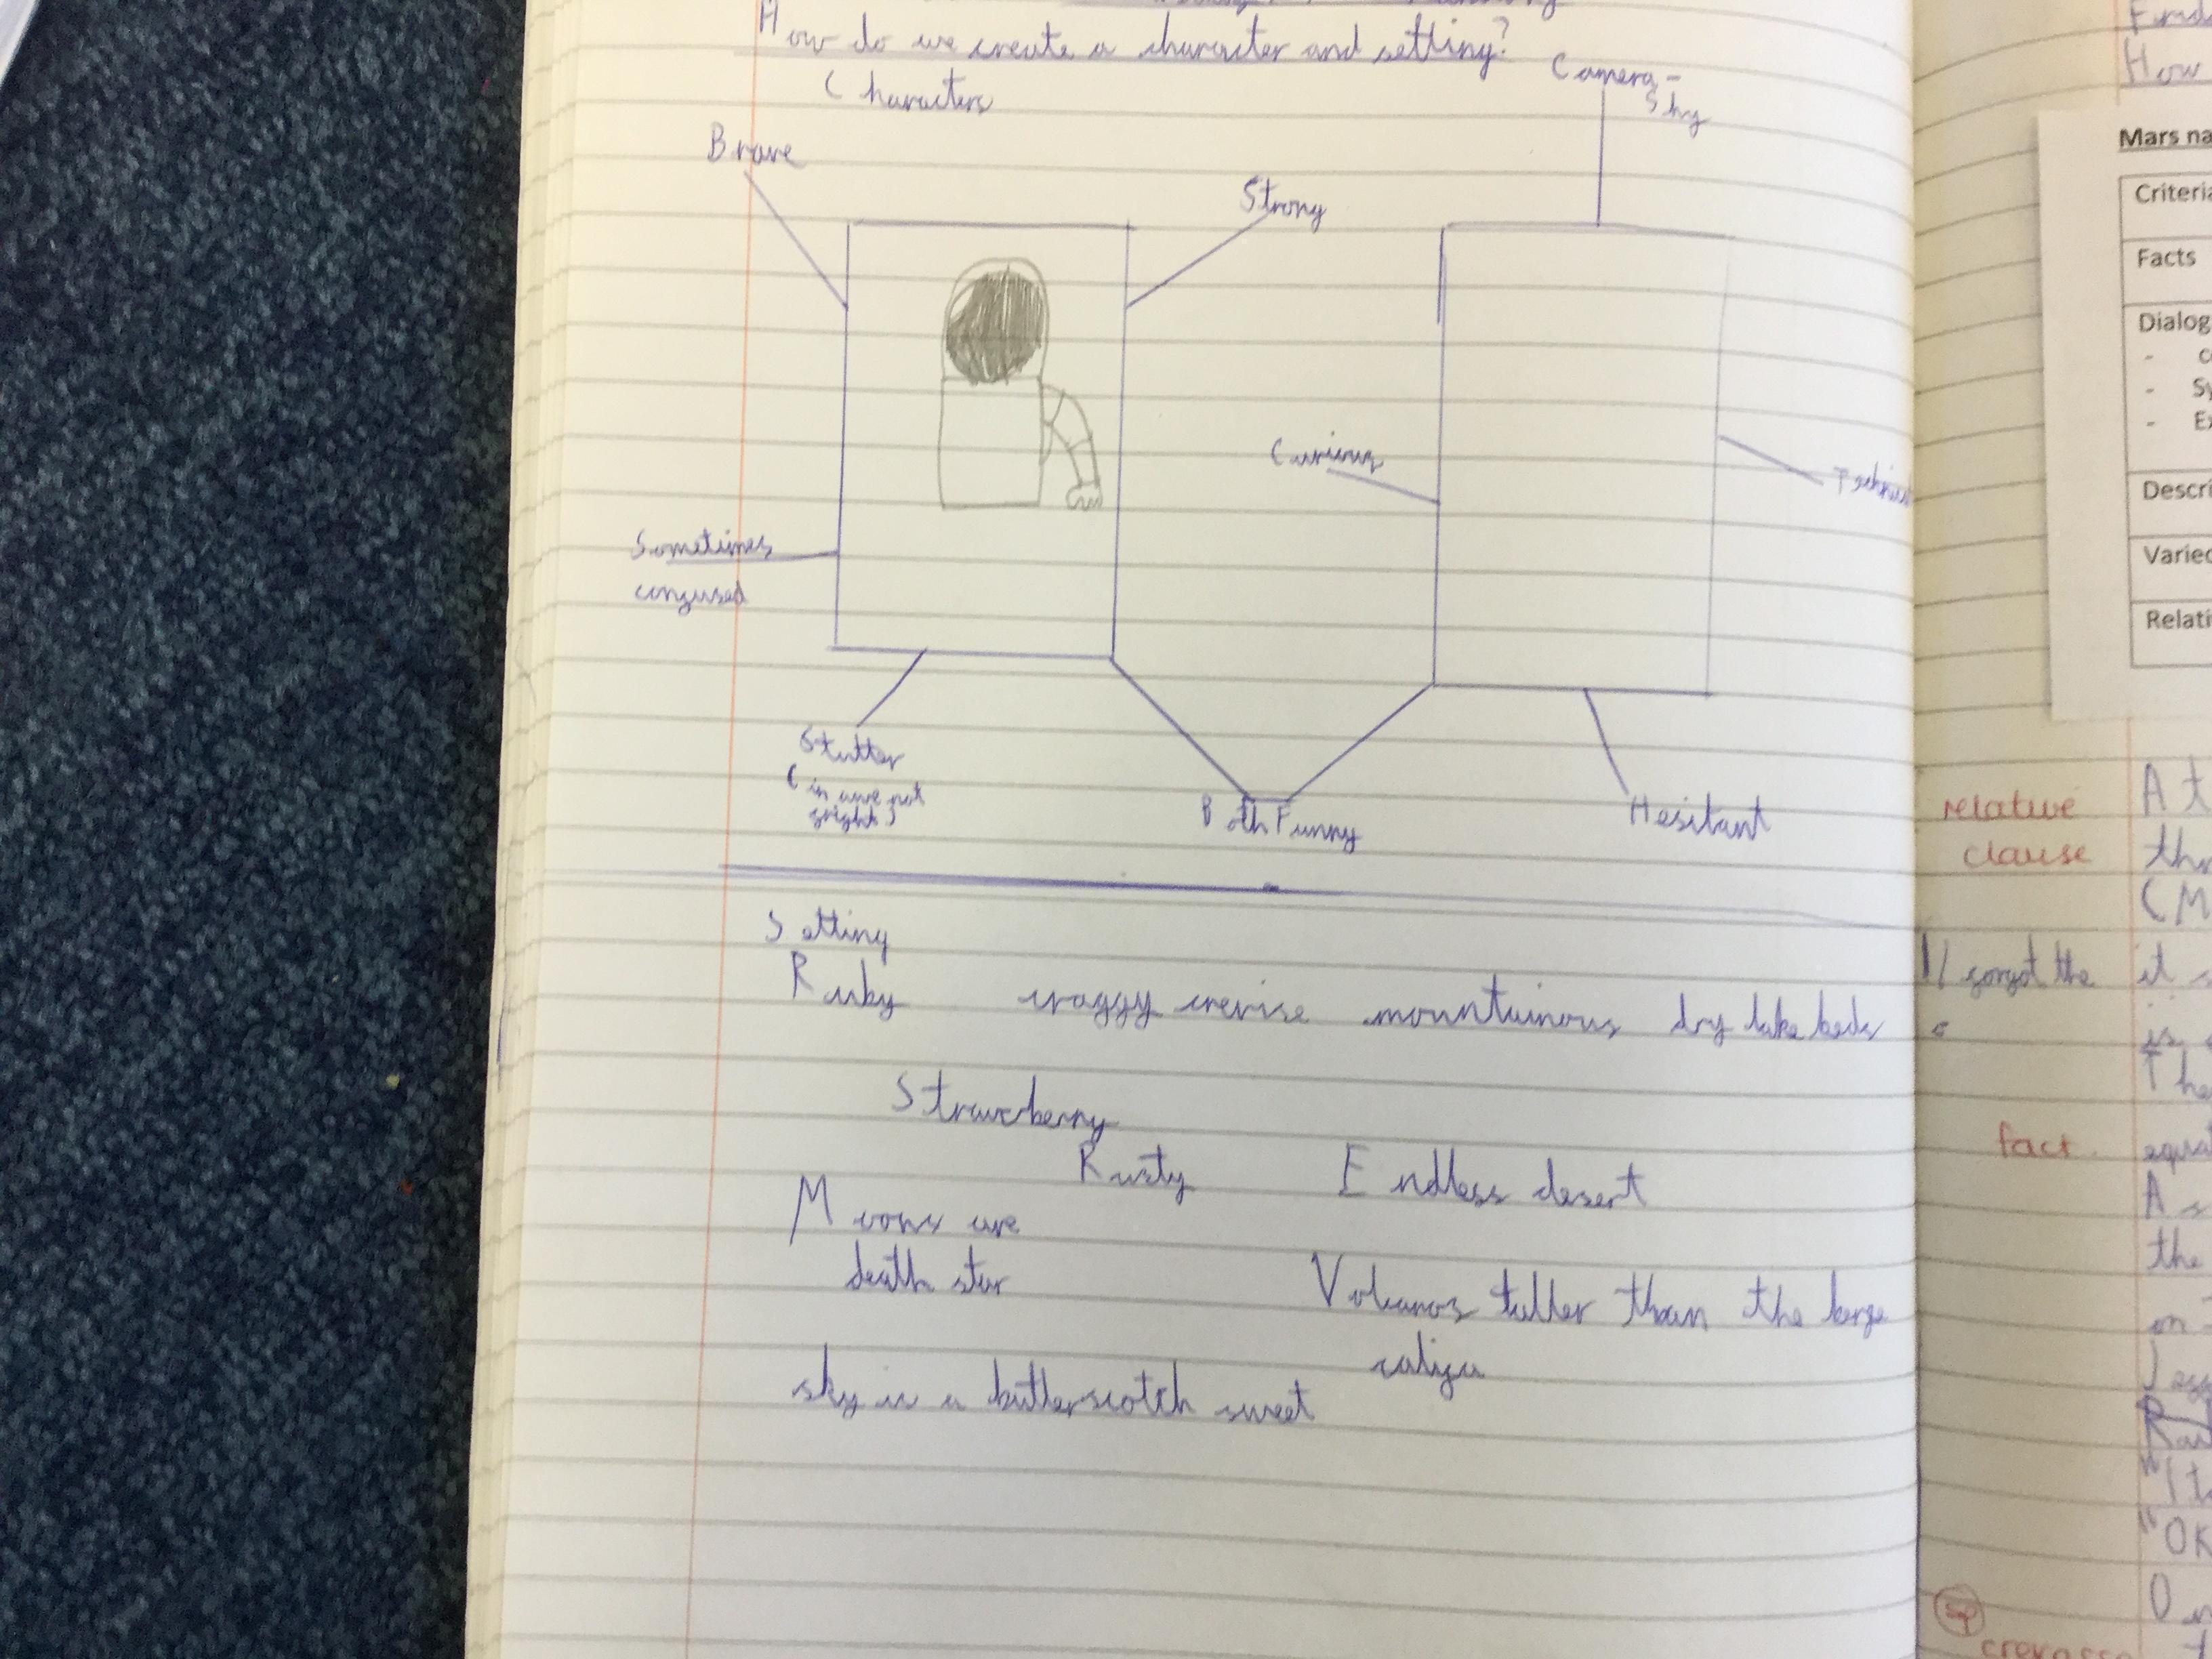 How do we create a character and setting?
Characters
Camera-
Shy
Brave
Strong
Curious
Sometimes
confused
Stutter
(in awe not
fright)
Both Funny
Hesitant
Setting
Ruby craggy crevise mountainous dry lake beds
Strawberry
Rusty Endless desert
Moons are
death star
Volcanos taller than the
sky is a butterscotch sweet
How
Mars na
Criteria
Facts
Dialog
-
- Sy
- Ex
Descri
Varied
Relati
relative
clause
A t
tho
(M
I forgot the it
is
The
fact.
A s
the
on
"OK
sp
crevasse